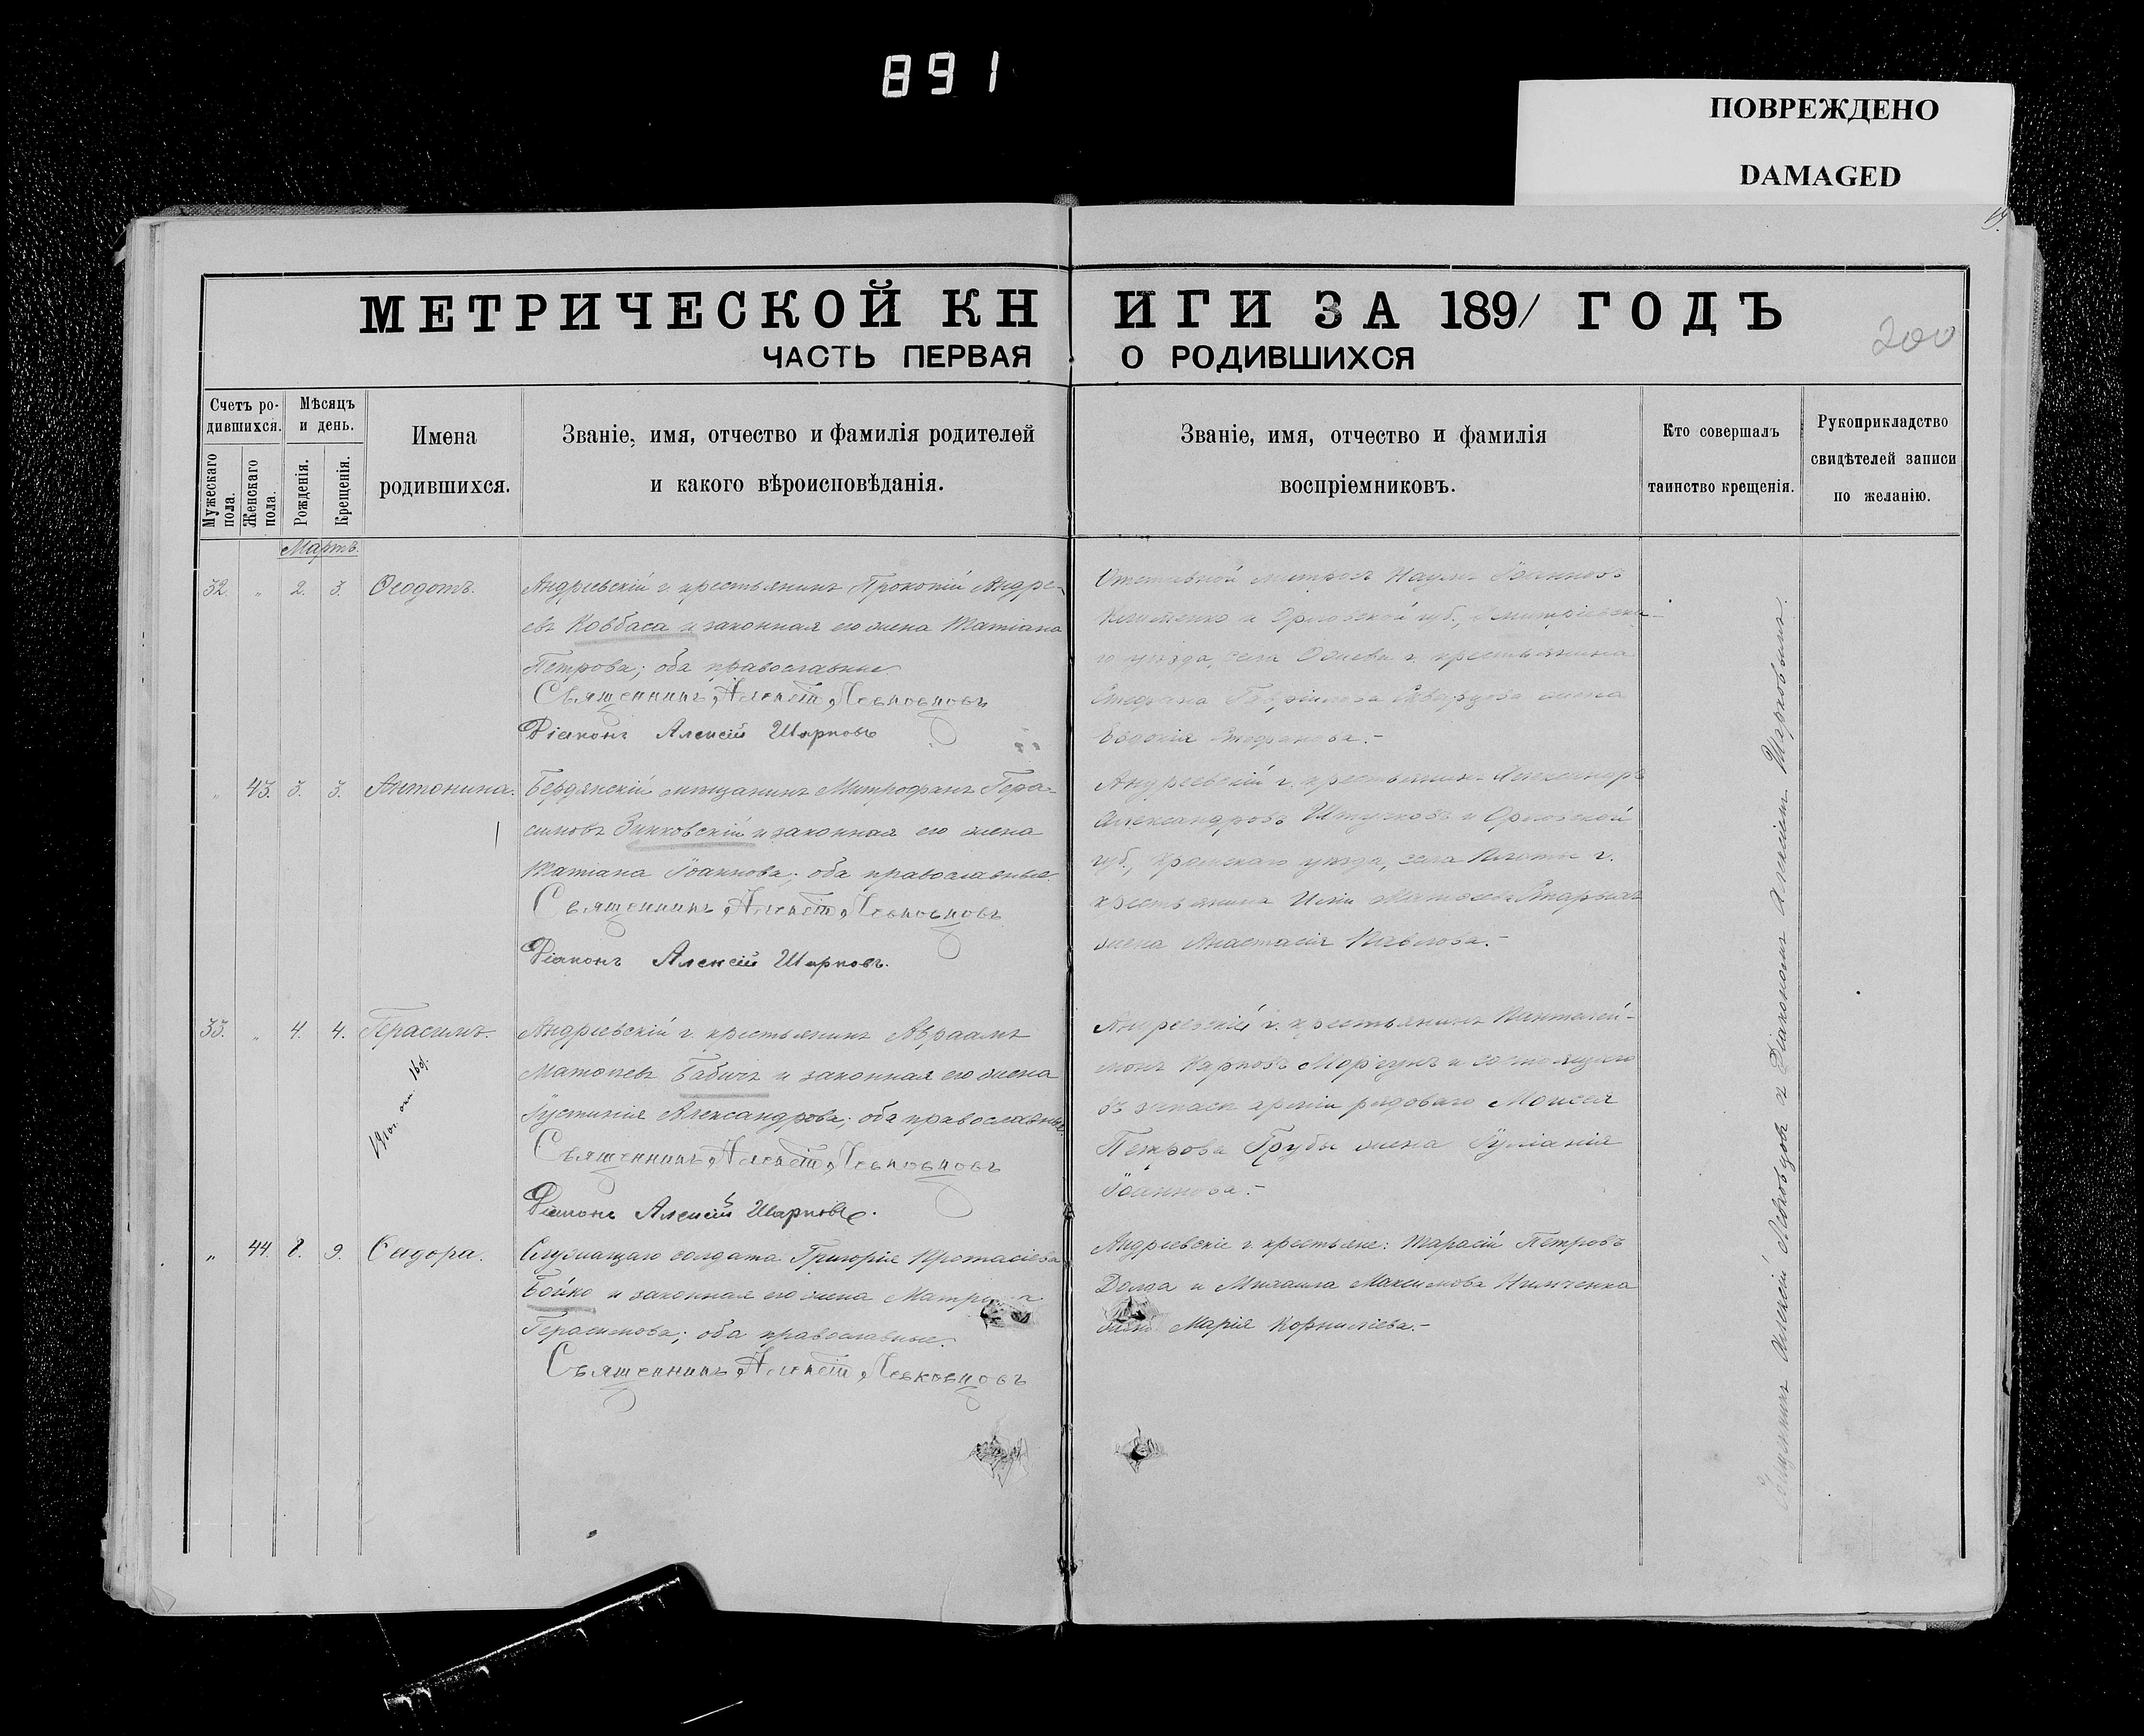 891
ПОВРЕЖДЕНО
DAMAGED
МЕТРИЧЕСКОЙ КНИГИ ЗА 1891 ГОДЪ
200
ЧАСТЬ ПЕРВАЯ О РОДИВШИХСЯ
Счетъ родившихся.
Мужескаго пола.
Женскаго пола.
Мѣсяцъ и день.
Рожденія.
Крещенія.
Имена
родившихся.
Званіе, имя, отчество и фамилія родителей
и какого вѣроисповѣданія.
Званіе, имя, отчество и фамилія
воспріемниковъ.
Кто совершалъ
таинство крещенія.
Рукоприкладство
свидѣтелей записи
по желанію.
Мартъ.
32. " 2. 3. Ѳеодотъ.
Андреевскій г. крестьянинъ Прокопій Андре-
евъ Ковбаса и законная его жена Татіана
Петрова; оба православные
Священникъ Алексій Левковцовъ
Діаконъ Алексій Шарповъ
Отставной матросъ Наумъ Іоанновъ
и Орловской губ.,
го уѣзда, села г. крестьянина
Стефана жена
Евдокія Стефанова.-
" 43. 3. 3. Антонина.
Бердянскій мѣщанинъ Митрофанъ Гера-
симовъ Зинковскій и законная его жена
Татіана Іоаннова; оба православные.
Священникъ Алексій Левковцовъ
Діаконъ Алексій Шарповъ.
Андреевскій г. крестьянинъ Александръ
Александровъ Штучковъ и Орловской
губ., Кромскаго уѣзда, села г.
крестьянина Иліи
жена Анастасія Павлова.-
33. " 4. 4. Герасимъ.
1910г. окт. 16д.
Андреевскій г. крестьянинъ Авраамъ
Матѳіевъ Бабичъ и законная его жена
Іустинія Александрова; оба православные.
Священникъ Алексій Левковцовъ
Діаконъ Алексій Шарповъ.
Андреевскій г. крестьянинъ Пантелей-
монъ Карповъ Моргунъ и состоящаго
въ запасѣ арміи рядового Моисея
Петрова Грубы жена Іуліанія
Іоаннова.-
" 44. 8. 9. Сидора.
Служащаго солдата Григорія Протасіева
Бойко и законная его жена
Герасимова; оба православные.
Священникъ Алексій Левковцовъ
Андреевскіе г. крестьяне: Тарасій Петровъ
Долда и Михаила Максимова Нимченка
жена Марія Корниліева.-
Священникъ Алексій Левковцовъ и Діакономъ Алексіемъ Шарповымъ.